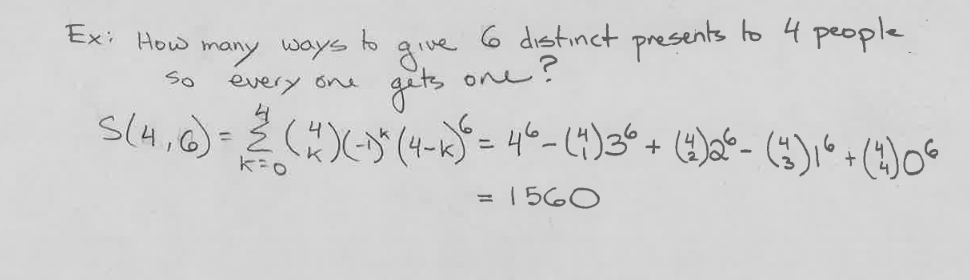 Ex: How many ways to give 6 distinct presents to 4 people
so every one gets one?
S(4,6) = 4 Σ k=0 (4 k)(-1)^k (4-k)^6 = 4^6 - (4 1)3^6 + (4 2)2^6 - (4 3)1^6 + (4 4)0^6
= 1560